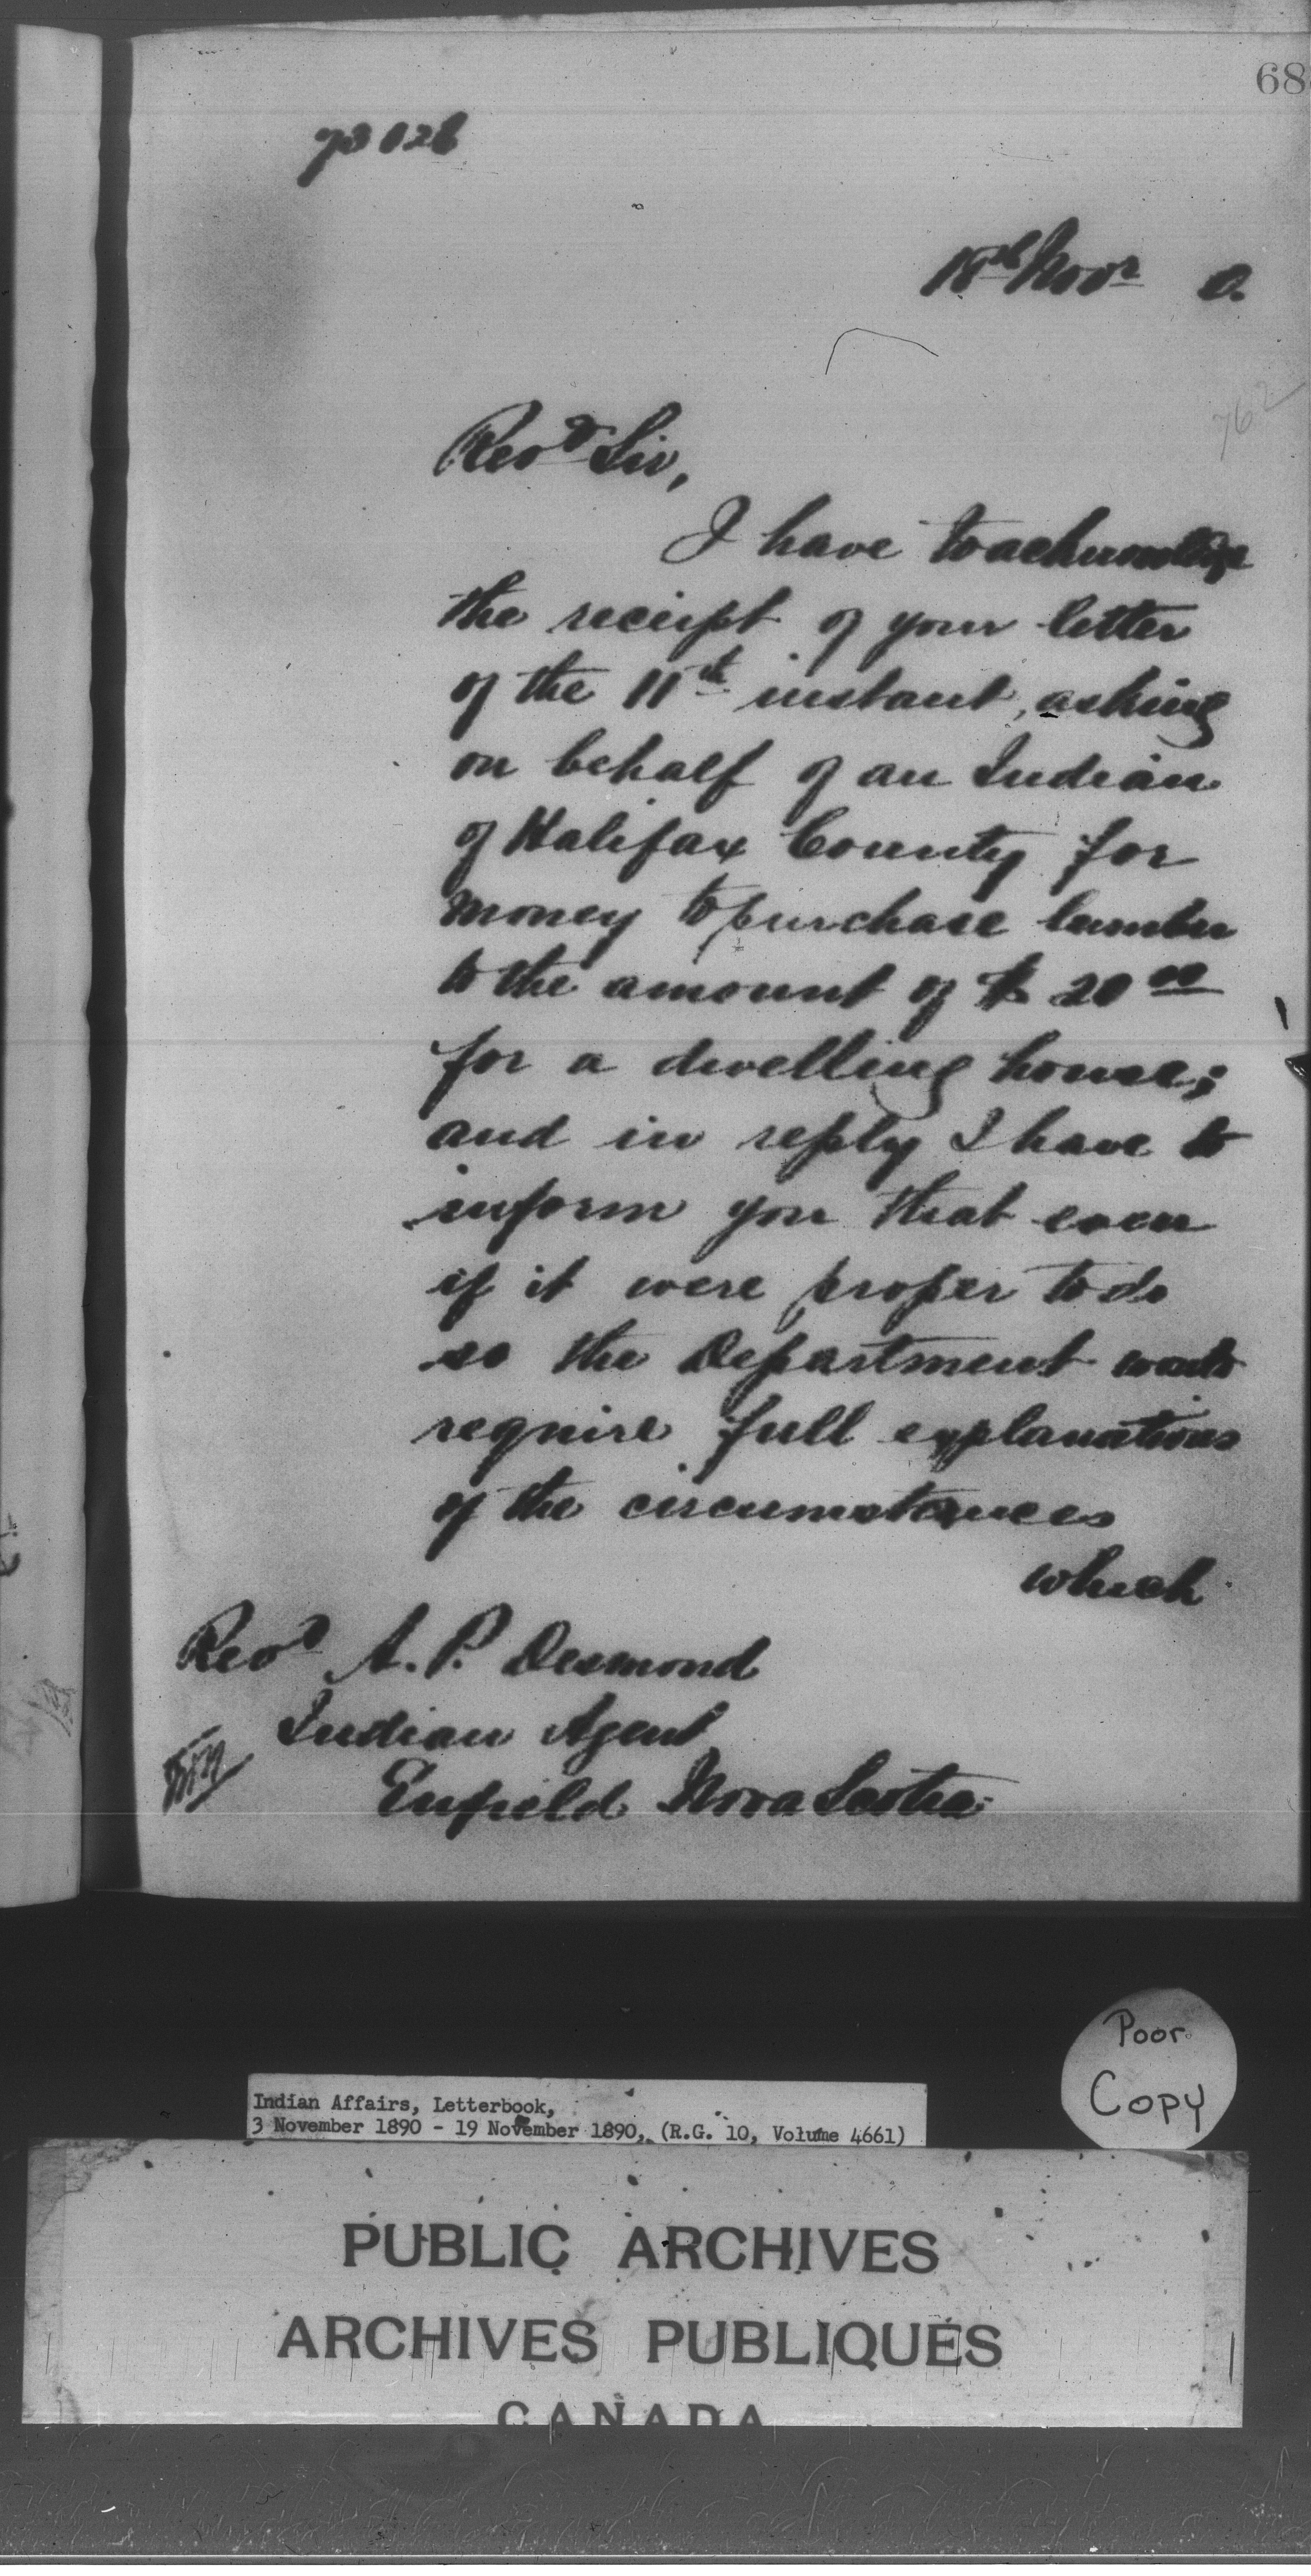 68
73026
18th Novr 0.
762
Revd Sir,
I have to acknowledge
the receipt of your letter
of the 11th instant, asking
on behalf of an Indian
of Halifax County for
money to purchase lumber
to the amount of $20 00
for a dwelling house;
and in reply I have to
inform you that even
if it were proper to do
so the Department would
require full explanations
of the circumstances
which
Revd A. P. Desmond
Indian Agent
Enfield Nova Scotia
Poor
Copy
Indian Affairs, Letterbook,
3 November 1890 - 19 November 1890, (R.G. 10, Volume 4661)
PUBLIC ARCHIVES
ARCHIVES PUBLIQUES
CANADA